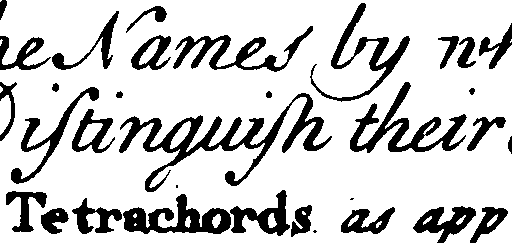 he Names by wh
Diſtinguiſh their
Tetrachords. as app